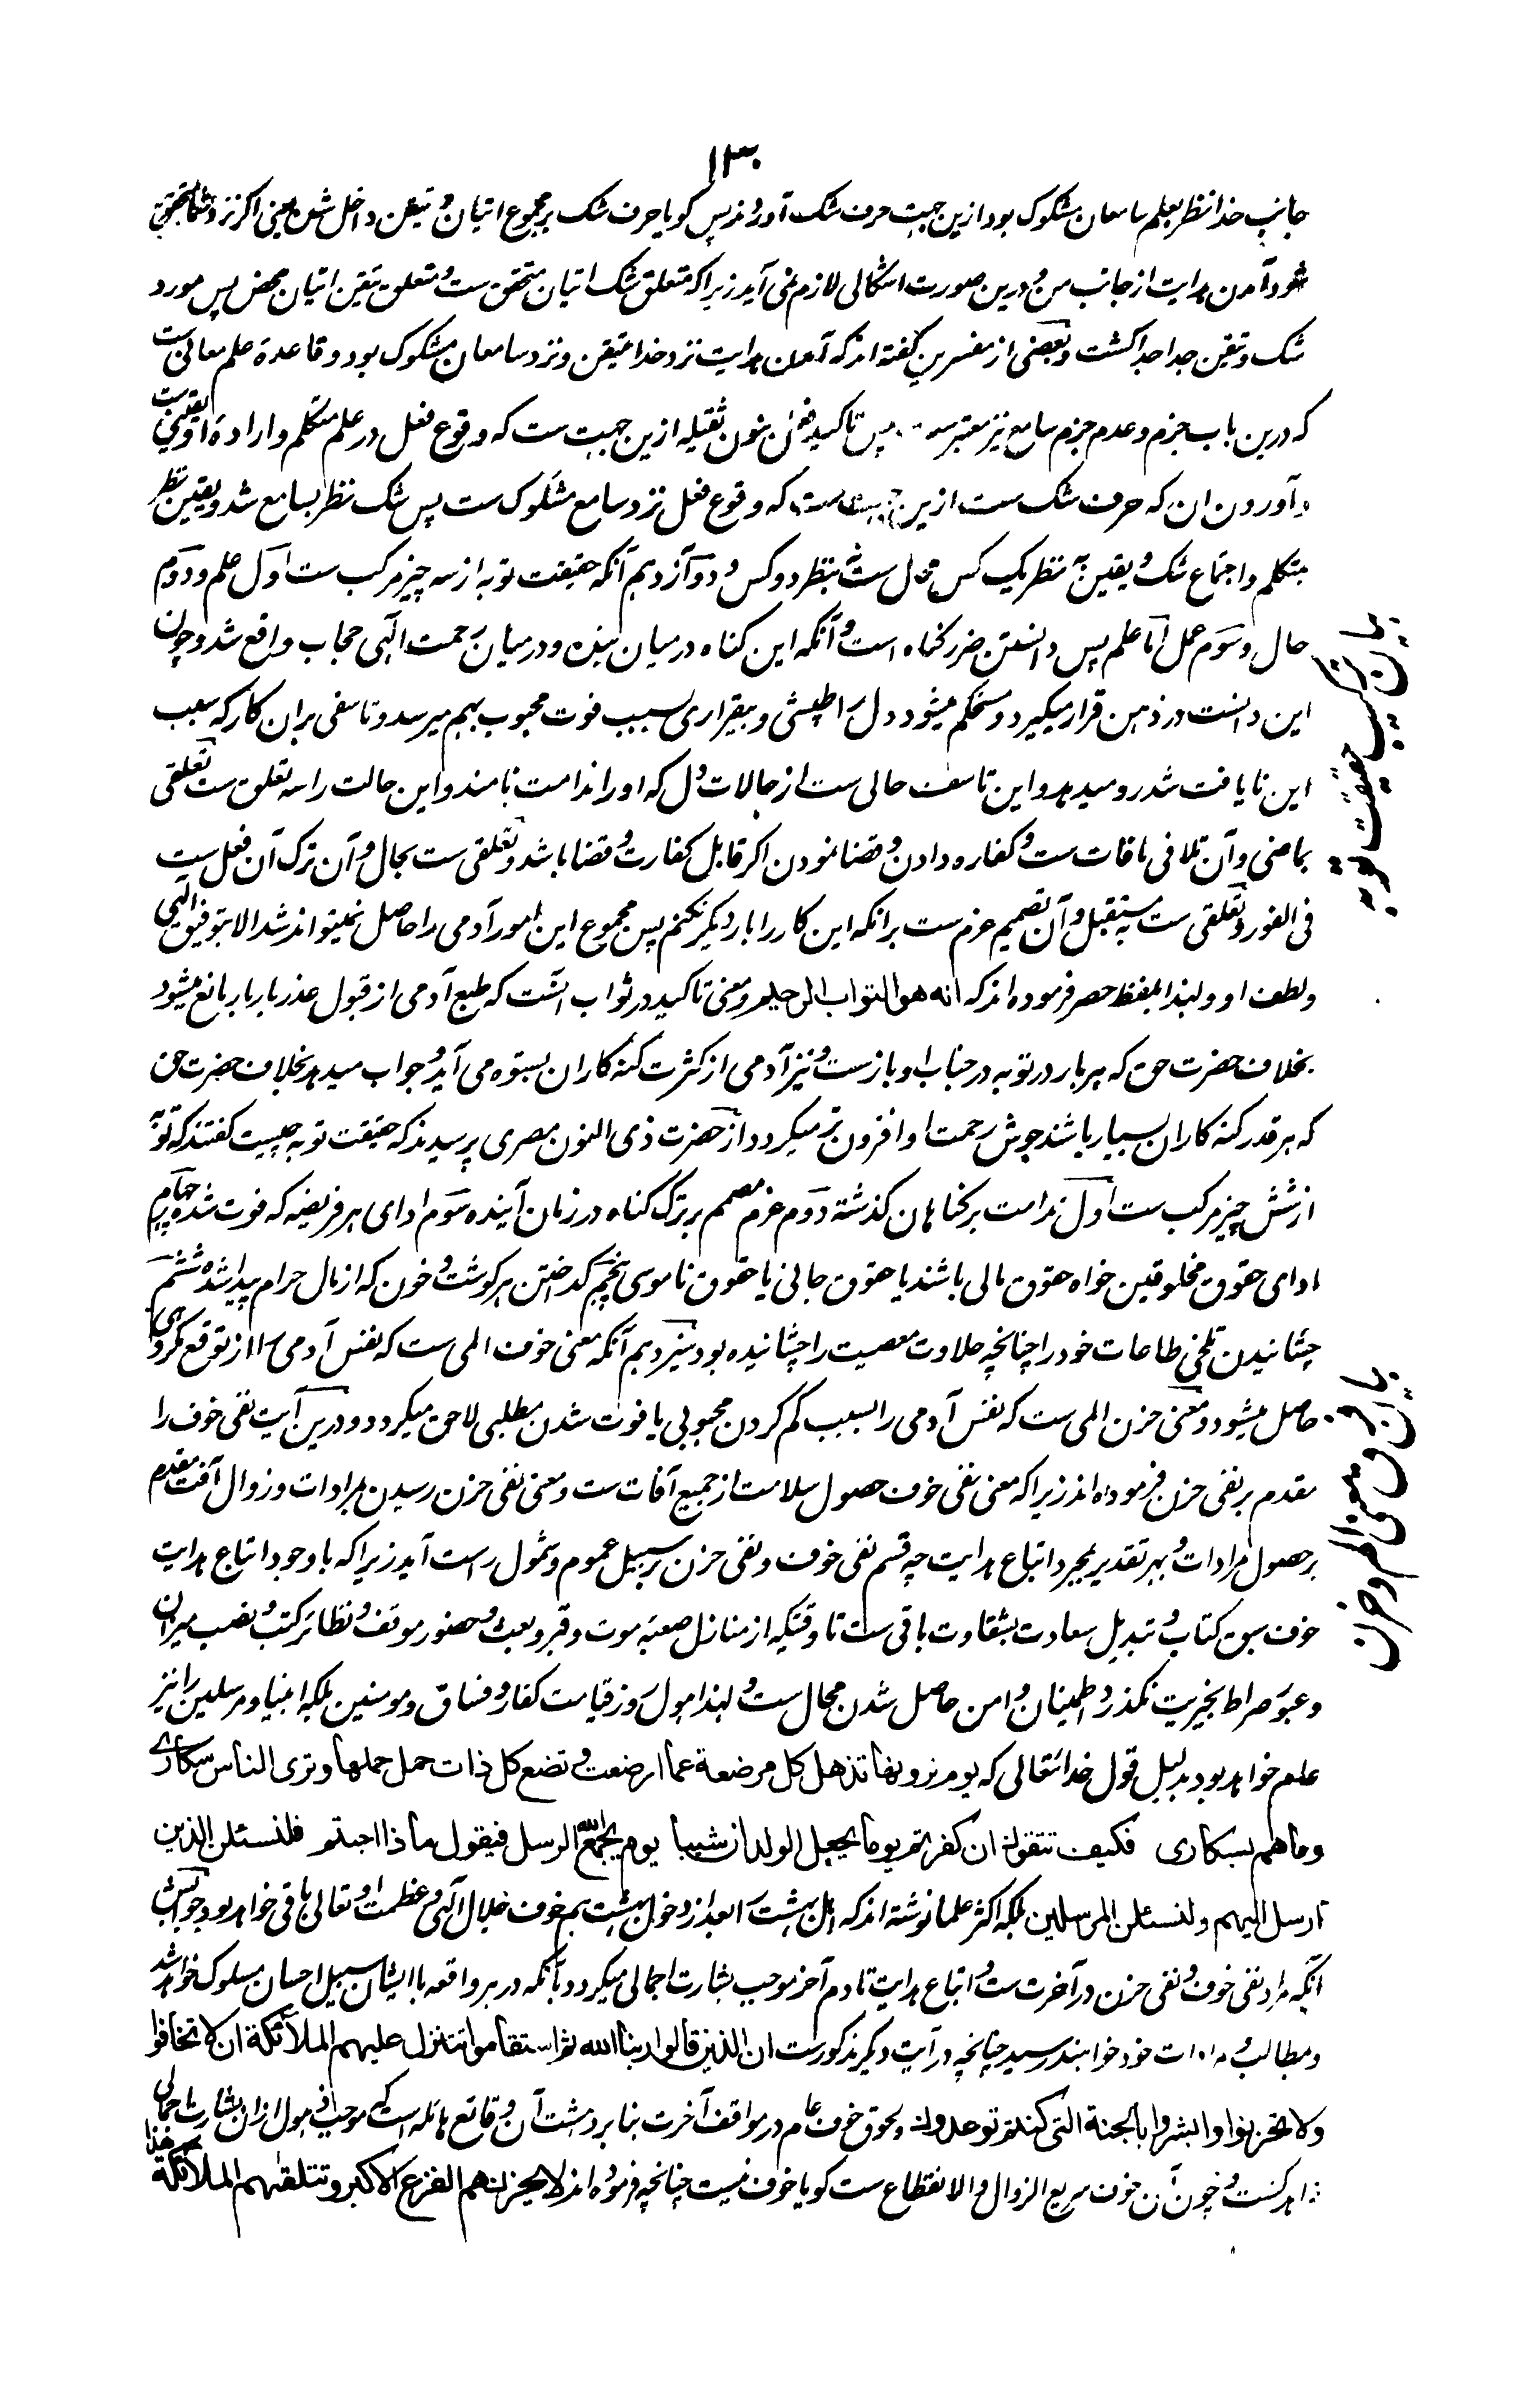 ۱۳۰
جانب خدا نظر بعلم سامعان مشکوک بود ازین جهت حرف شک آوردند پس کویا حرف شک بر مجموع اتیان و تیقن داخل شد یعنی اکر نزد شما متحقق
شود آمدن هدایت از جانب من و درین صورت اشکالی لازم نمی آید زیراکه متعلق شک اتیان متحقق ست و متعلق تیقن اتیان محض پس مورد
شک و تیقن جدا جدا کشت و بعضی از مفسرین کفته اند که آمدن هدایت نزد خدا متیقن و نزد سامعان مشکوک بود و قاعدهٔ علم معانی ست
که درین باب جزم و عدم جزم سامع نیز معتبر پس تاکید فعل بنون ثقیله ازین جهت ست که وقوع فعل در علم متکلم و ارادهٔ او یقینی ست
و آوردن ان که حرف شک ست ازین جهت ست که وقوع فعل نزد سامع مشکوک ست پس شک نظر بسامع شد و یقین نظر
بمتکلم و اجتماع شک و یقین به نظر یک کس محال ست نه بنظر دو کس و دوازدهم آنکه حقیقت توبه از سه چیز مرکب ست اول علم و دوم
حال و سوم عمل اما علم پس دانستن ضرر کناه است و آنکه این کناه درمیان بنده و درمیان رحمت الهی حجاب واقع شد و چون
این دانست در ذهن قرار میکیرد و مستحکم میشود دل را طپشی و بیقراری بسبب فوت محبوب بهم میرسد و تاسفی بران کار که سبب
این نایافت شد رو میدهد و این تاسف حالی ست از حالات دل که او را ندامت نامند و این حالت را سه تعلق ست تعلقی
بماضی و آن تلافی مافات ست و کفاره دادن و قضا نمودن اکر قابل کفارت و قضا باشد و تعلقی ست بحال و آن ترک آن فعل ست
فی الفور و تعلقی ست به مستقبل و آن تصمیم عزم ست برانکه این کار را بار دیکر نکنم پس مجموع این امور آدمی را حاصل نمیتواند شد الا بتوفیق الهی
و لطف او و لهذا بلفظ حصر فرموده اند که انه هو التواب الرحیم و معنی تاکید در تواب آنست که طبع آدمی از قبول عذر بار بار مانع میشود
بخلاف حضرت حق که هر بار در توبه در جناب او باز ست و نیز آدمی از کثرت کنه کاران بستوه می آید و جواب میدهد بخلاف حضرت حق
که هر قدر کنه کاران بسیار باشند جوش رحمت او افزون تر میکردد از حضرت ذی النون مصری پرسیدند که حقیقت توبه چیست کفتند که توبه
از شش چیز مرکب ست اول ندامت بر کناهان کذشته دوم عزم مصمم بر ترک کناه در زمان آینده سوم ادای هر فریضه که فوت شده چهارم
ادای حقوق مخلوقین خواه حقوق مالی باشند یا حقوق جانی یا حقوق ناموسی پنجم کداختن هر کوشت و خون که از مال حرام پیدا شده ششم
چشانیدن تلخی طاعات خود را چنانچه حلاوت معصیت را چشانیده بود سیزدهم آنکه معنی خوف المی ست که نفس آدمی را از توقع مکروهی
حاصل میشود و معنی حزن المی ست که نفس آدمی را بسبب کم کردن محبوبی یا فوت شدن مطلبی لاحق میکردد و درین آیت نفی خوف را
مقدم بر نفی حزن فرموده اند زیراکه معنی نفی خوف حصول سلامت از جمیع آفات ست و معنی نفی حزن رسیدن بمرادات و زوال آفت مقدم
بر حصول مرادات و بهر تقدیر بمجرد اتباع هدایت چه قسم نفی خوف و نفی حزن بر سبیل عموم و شمول راست آید زیراکه با وجود اتباع هدایت
خوف سبق کتاب و تبدیل سعادت بشقاوت باقی ست تا وقتیکه از منازل صعبه موت و قبر و بعث و حضور موقف و تطائر کتب و نصب میزان
و عبور صراط بخیریت نکذرد و اطمینان و امن حاصل شدن محال ست و لهذا هول روز قیامت کفار و فساق و مومنین بلکه انبیا و مرسلین را نیز
عام خواهد بود بدلیل قول خدا تعالی که یوم ترونها تذهل کل مرضعة عما ارضعت و تضع کل ذات حمل حملها و تری الناس سکاری
وما هم بسکاری فکیف تتقون ان کفرتم یوما یجعل الولدان شیبا یوم یجمع الله الرسل فیقول ماذا اجبتم فلنسئلن الذین
ارسل الیهم ولنسئلن المرسلین بلکه اکثر علما نوشته اند که اهل بهشت را بعد از دخول بهشت هم خوف جلال الهی و عظمت او تعالی باقی خواهد بود جوابش
آنکه مراد نفی خوف و نفی حزن در آخرت ست و اتباع هدایت تا دم آخر موجب بشارت اجمالی میکردد بآنکه در هر واقعه با ایشان سبیل احسان مسلوک خواهد شد
و بمطالب و مرادات خود خواهند رسید چنانچه در آیت دیکر مذکور ست ان الذین قالوا ربنا الله ثم استقاموا تتنزل علیهم الملآئکة ان لا تخافوا
ولا تحزنوا وابشروا بالجنة التی کنتم توعدون و لحوق خوف عام در مواقف آخرت بنابر دهشت آن وقائع هائله است که موجب ذهول ازان بشارت اجمالی
خواهد کشت و چون آن خوف سریع الزوال و الانقطاع ست کویا خوف نیست چنانچه فرموده اند لا یحزنهم الفزع الاکبر و تتلقاهم الملآئکة
بیان ترکیب حقیقت توبه
بیان فرق معنی الم و حزن